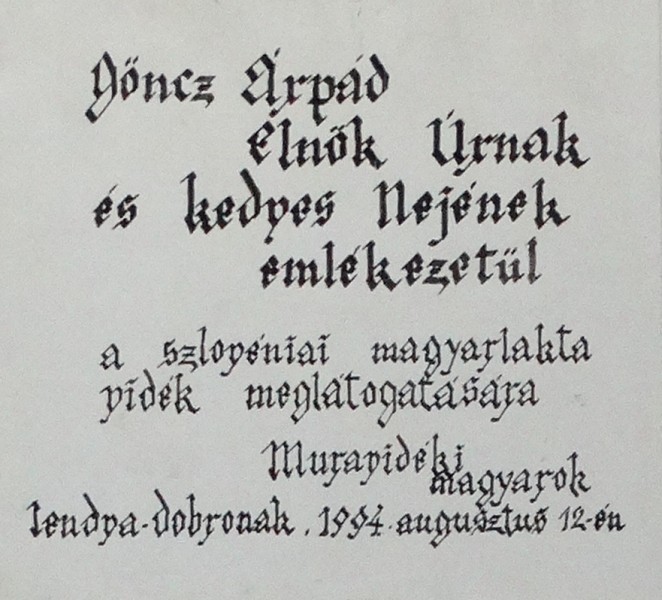 Göncz Árpád
Elnök Úrnak
és kedves Nejének
emlékezetül
a szlovéniai magyarlakta
vidék meglátogatására
Muravidéki
magyarok
lendva-dobronak. 1994. augusztus 12-én